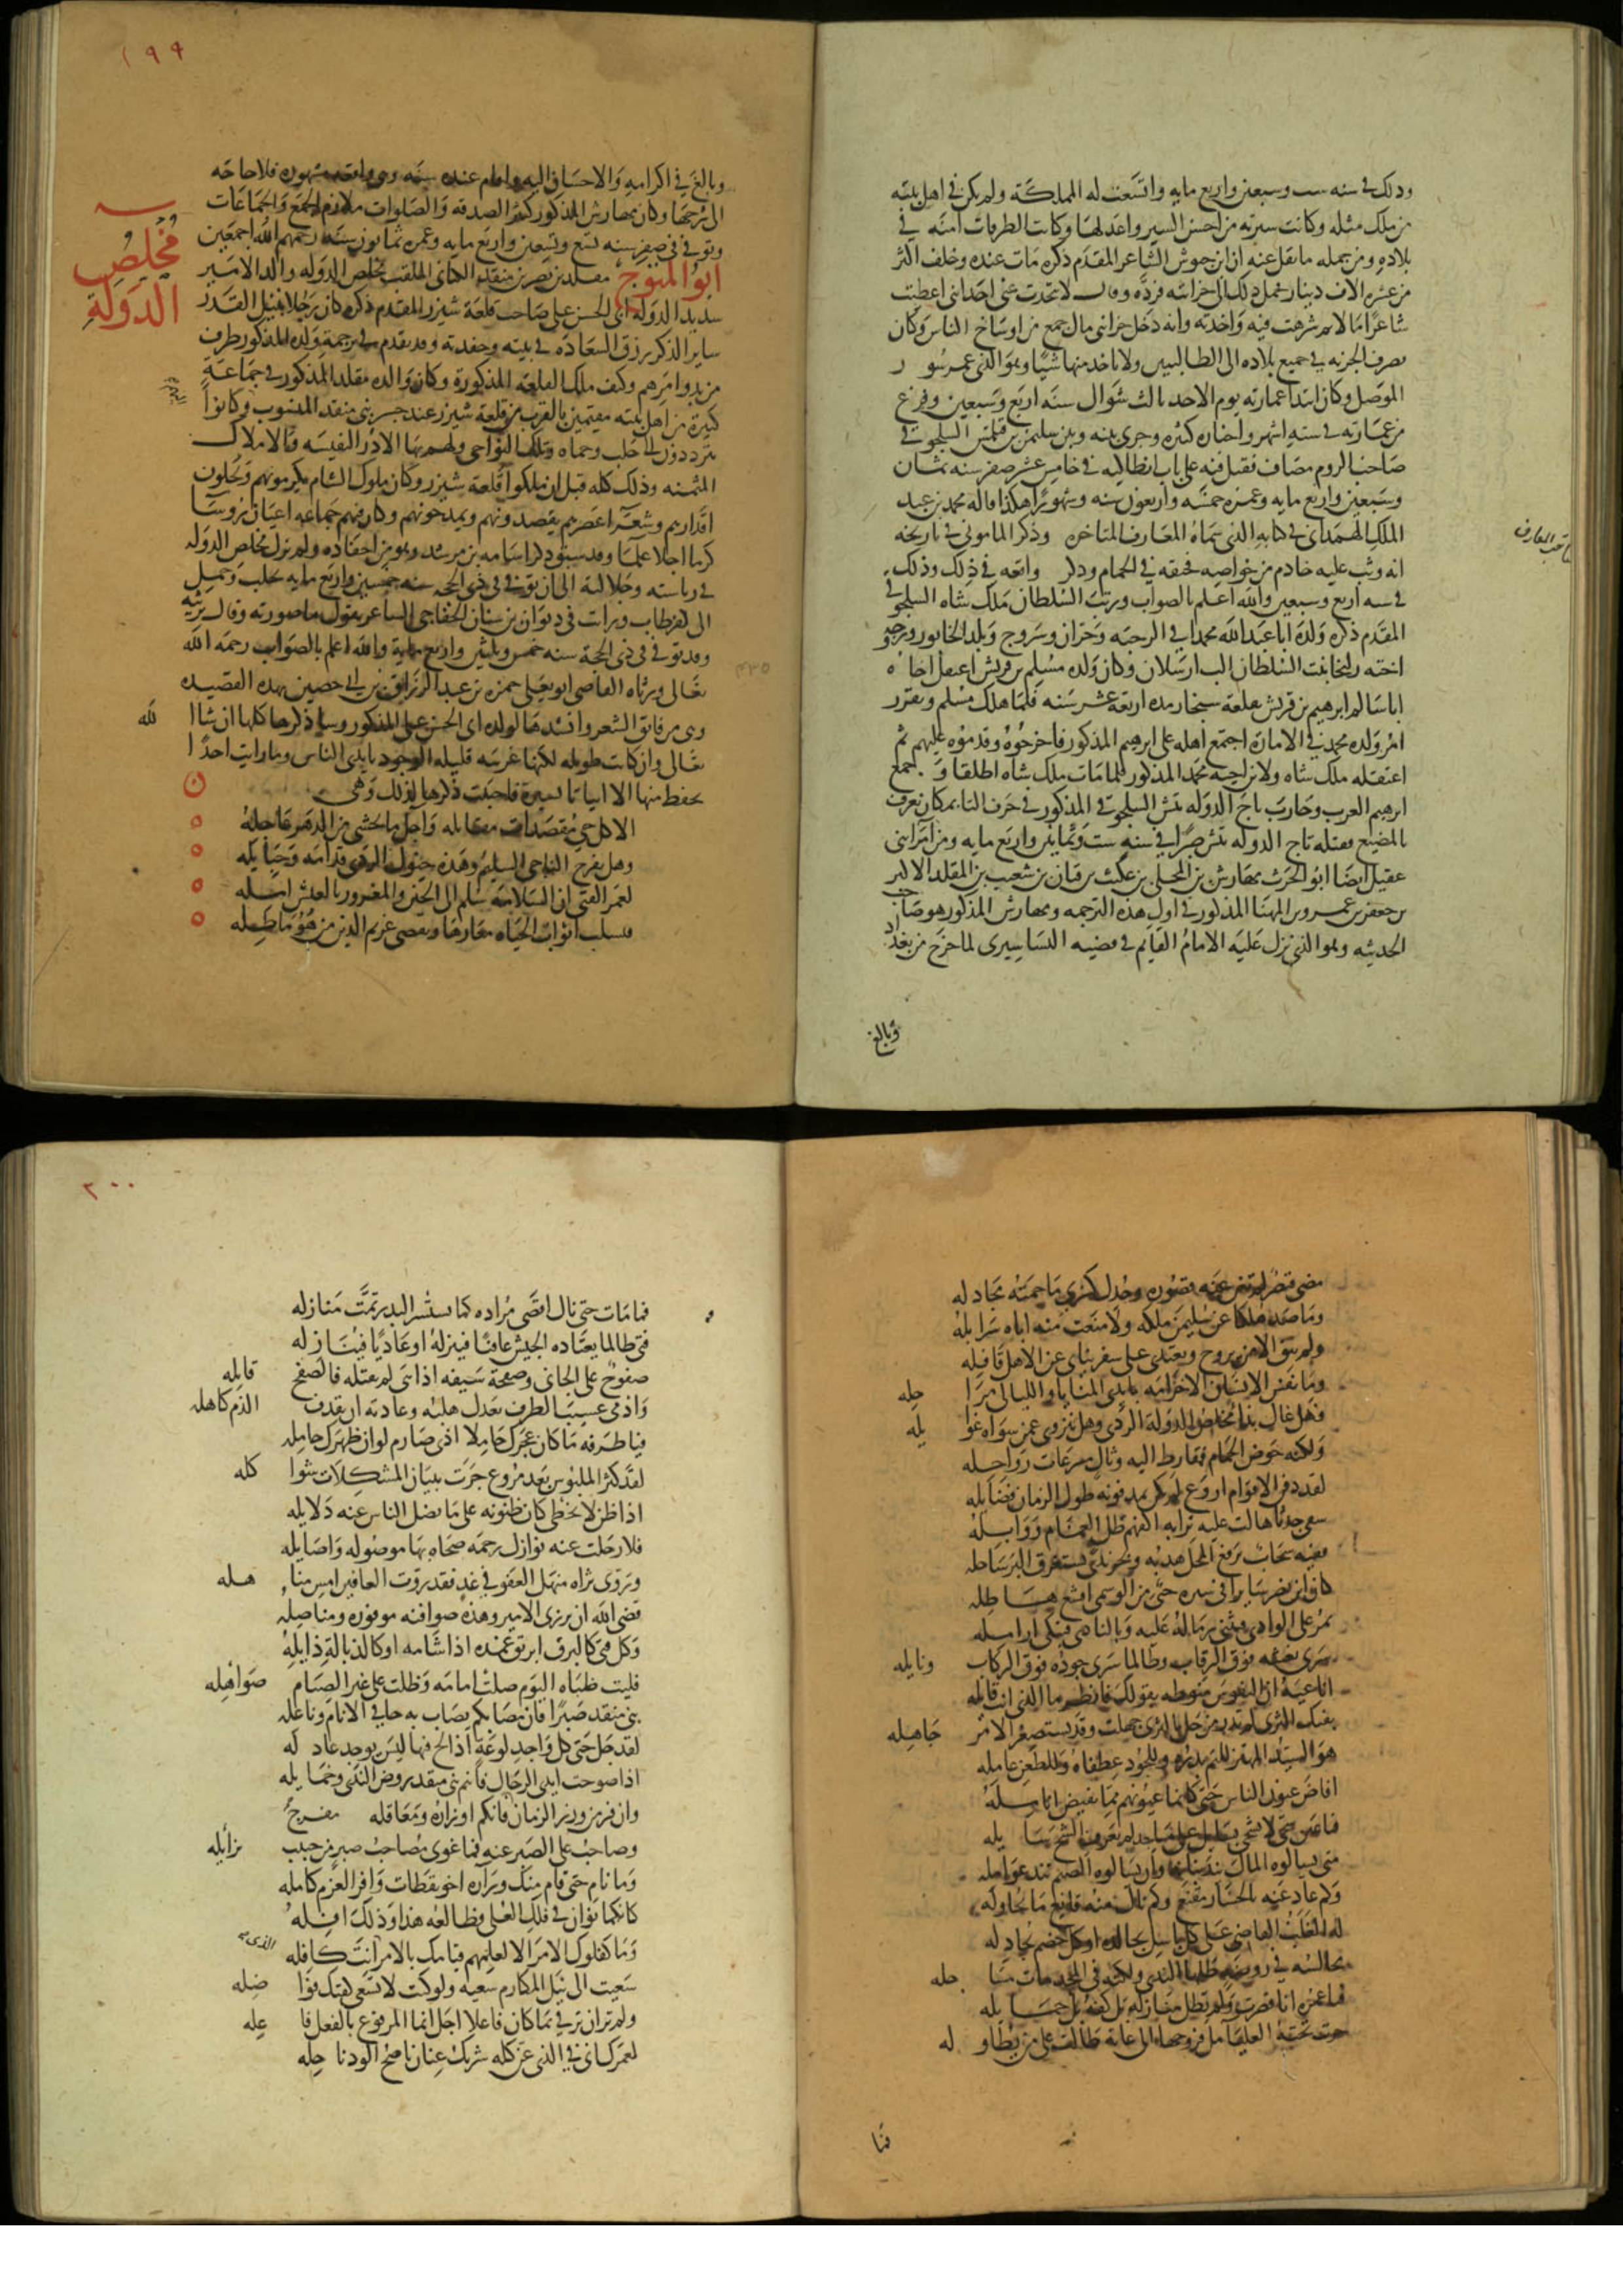 وذلك في سنه ست وسبعين واربع مايه واتسعت له المملكة ولم يكن في اهل بيته
من ملك مثله وكانت سيرته من احسن السير واعدلها وكانت الطرقات امنه في
بلاده ومن جمله ما نقل عنه ان ابن حيوش الشاعر المقدم ذكره مات عنده وخلف اكثر
من عشره الاف دينار فحمل ذلك الى خزانته فرده وقال لا يتحدث عني احد اني اعطيت
شاعرا مالا ثم شرهت فيه واخذته وانه دخل خزانتي مال جمع من اوساخ الناس وكان
يصرف الجزيه في جميع بلاده الى الطالبيين ولا ياخذ منها شيا وهو الذي عمر سور
الموصل وكان ابتدا عمارته يوم الاحد ثالث شوال سنه اربع وسبعين وفرغ
من عمارته في سته اشهر واخباره كثيره وجرى بينه وبين سليمن بن قتلمش السلجوقي
صاحب الروم مصاف فقتل فيه على باب انطاكيه في خامس عشر صفر سنه ثمان
وسبعين واربع مايه وعمره خمسه واربعون سنه وشهورا هكذا قاله محمد بن عبد
الملك الهمداني في كتابه الذي سماه المعارف المتاخره وذكر الماموني في تاريخه
انه وثب عليه خادم من خواصه فخنقه في الحمام وذكر واقعه في ذلك وذلك
في سنه اربع وسبعين والله اعلم بالصواب ورتب السلطان ملك شاه السلجوقي
المقدم ذكره ولده ابا عبد الله محمدا في الرحبه وحران وسروج وبلد الخابور وزوجه
اخته زليخا بنت السلطان الب ارسلان وكان ولده مسلم بن قريش اعتقل اخاه
ابا سالم ابرهيم بن قريش بقلعة سنجار مده اربعة عشر سنه فلما هلك مسلم وتقرر
امر ولده محمد في الامارة اجتمع اهله على ابرهيم المذكور فاخرجوه وقدموه عليهم ثم
اعتقله ملك شاه ولابن اخيه محمد المذكور فلما مات ملك شاه اطلقا وجمع
ابرهيم العرب وحارب تاج الدوله تتش السلجوقي المذكور في حرف التا بمكان يعرف
بالمضيع فقتله تاج الدوله تتش صبرا في سنه ست وثمانين واربع مايه ومن امرا بني
عقيل ايضا ابو الحرث مهارش بن المجلى بن عكيث بن قيان بن شعيب بن المقلد الاكبر
بن جعفر بن عمرو بن المهنا المذكور في اول هذه الترجمه ومهارش المذكور هو صاحب
الحديثه وهو الذي نزل عليه الامام القايم في قضيه البساسيري لما خرج من بغداد
وبالغ
١٩٩
وبالغ في اكرامه والاحسان اليه واقام عنده سنه وهي واقعه مشهوره فلا حاجه
الى شرحها وكان مهارش المذكور كثير الصدقه والصلوات ملازم الجمع والجماعات
وتوفي في صفر سنه تسع وتسعين واربع مايه وعمره ثمانون سنه رحمهم الله اجمعين
مخلص الدولة
ابو المتوج مقلد بن نصر بن منقذ الكناني الملقب مخلص الدوله والد الامير
سديد الدوله ابي الحسن علي صاحب قلعة شيزر المقدم ذكره كان رجلا نبيل القدر
ساير الذكر رزق السعاده في بيته وحفدته وقد تقدم في ترجمة ولده المذكور طرف
من بدو امرهم وكيف ملك القلعه المذكورة وكان والده مقلد المذكور في جماعة
كثيرة من اهل بيته مقيمين بالقرب من قلعة شيزر عند جسر بني منقذ المنسوب وكانوا
يترددون الى حلب وحماه وتلك النواحي ولهم بها الادر النفيسه والاملاك
المثمنه وذلك كله قبل ان يملكوا قلعة شيزر وكان ملوك الشام يكرمونهم ويجلون
اقدارهم وشعرا عصرهم يقصدونهم ويمدحونهم وكان فيهم جماعه اعيان روسا
كرما اجلا علما وقد سبق ذكر اسامه بن مرشد وهو من احفاده ولم يزل مخلص الدوله
في رياسته وجلالته الى ان توفي في ذي الحجه سنه خمسين واربع مايه بحلب وحمل
الى كفرطاب ورايت في ديوان بن سنان الخفاجي الشاعر يقول ما صورته وقال يرثيه
وقد توفي في ذي الحجة سنه خمس وثلثين واربع مايه والله اعلم بالصواب رحمه الله
تعالى ورثاه القاضي ابو يعلى حمزه بن عبد الرزاق بن ابي حصين بهذه القصيده
وهي من فايق الشعر وانشدها لولده ابي الحسن علي المذكور وساذكرها كلها ان شا الله
تعالى وان كانت طويله لكنها غريبه قليله الوجود بايدي الناس وما رايت احدا
يحفظ منها الا ابياتا يسيرة فاحببت ذكرها لذلك وهي
الا كل حي مقصدات مقاتله واجل ما يخشى من الدهر عاجله
وهل يفرح الناجي السليم وهذه خيول الردى قدامه وحبايله
لعمر الفتى ان السلامه سلم الى الحين والمغرور بالعيش امله
فسلب اثواب الحياه معارها ويقضي غريم الدين من هو ماطله
مضى قيصر لم تغن عنه قصوره وجدل كسرى ما حمته مجادله
وما صد هلكا عن سليمن ملكه ولا منعت منه اباه سرابله
ولم يبق الا من يروح ويغتدي على سفر يناى عن الاهل قافله
وما نفس الانسان الا خزامه بايدي المنايا والليالي مراحله
فهل غال بدا مخلص الدولة الردى وهل تزوى عمن سواه غوايله
ولكنه حوض الحمام ففارط اليه وتال مسرعات رواحله
لقد دفن الاقوام اروع لم تكن بمدفونه طول الزمان فضايله
سقى جدثا هالت عليه ترابه اكفهم طل الغمام ووابله
ففيه سحاب يرفع المحل هدبه وبحر ندى يستغرق البر ساحله
كان ابن نصر سايرا في سريره حتى من الوسمي اقشع هاطله
يمر على الوادي فتثني رماله عليه وبالنادي فتبكي ارامله
سرى نعشه فوق الرقاب وطالما سرى جوده فوق الركاب ونايله
اناعيه ان النفوس منوطه بقولك فانظر ما الذي انت قايله
بفيك الثرى لم تدر من حل بالثرى جهلت وقد يستصغر الامر جاهله
هو السيد المهتز للتم بدره وللجود عطفاه وللطعن عامله
افاض عيون الناس حتى كانما عيونهم مما تفيض انامله
متى يسالوه المال تند بنانه وان يسالوه الضيم تند عوامله
وكم عاد عنه بالخسار مقنع وكم نال منه قانع ما يحاوله
فنا
٢٠٠
فما مات حتى نال اقصى مراده كما يستسر البدر تمت منازله
فتى طالما يعتاده الجيش عافيا فينزله او عاديا فينازله
صفوح على الجاني وصفحة سيفه اذا شي لم تقتله فالصفح قاتله
فيا طرفه ما كان عجزك حاملا اذى صارم لو ان ظهرك حامله
اذا ظن لا يخطي كان ظنونه على ما يضل الناس عنه دلايله
فلا رحلت عنه نوازل رحمه ضحاه بها موصوله واصايله
وتروي ثراه منهل العفو في غد فقد روت العافين امس مناهله
قضى الله ان يردى الامير وهذه صوافنه موفوره ومناصله
وكل فتى كالبرق ابريق غمده اذا شامه او كالذبالة ذابله
فليت ظباه اليوم صلت امامه وظلت على غير الصيام صواهله
بني منقذ صبرا فان مصابكم يصاب به حافي الانام وناعله
لقد جل حتى كل واجد لوعة اذا لح فيها ليس يوجد عاذله
اذا صوحت ايدي الرجال فانتم بني منقذ روض الندى وخمايله
وان فر من وزر الزمان فانكم اوزاره ومعاقله مفرج
وصاحب على الصبر عنه فما غوى مصاحب صبر من حبيب يزايله
وما نام حتى قام منك وراه اخو يقظات وافر العزم كامله
كانكما نوان في فلك العلى فطالعه هذا وذلك افله
وما كفلوك الامر الا لعلمهم قيامك بالامر الذي انت كافله
سعيت الى نيل المكارم سعيه ولو كنت لا تسعى كفتك فواضله
ولم تران ترقى بما كان فاعلا اجل انما المرفوع بالفعل فاعله
لعمرك اني في الذي عن كله شريك عنان ناصح الود ناحله